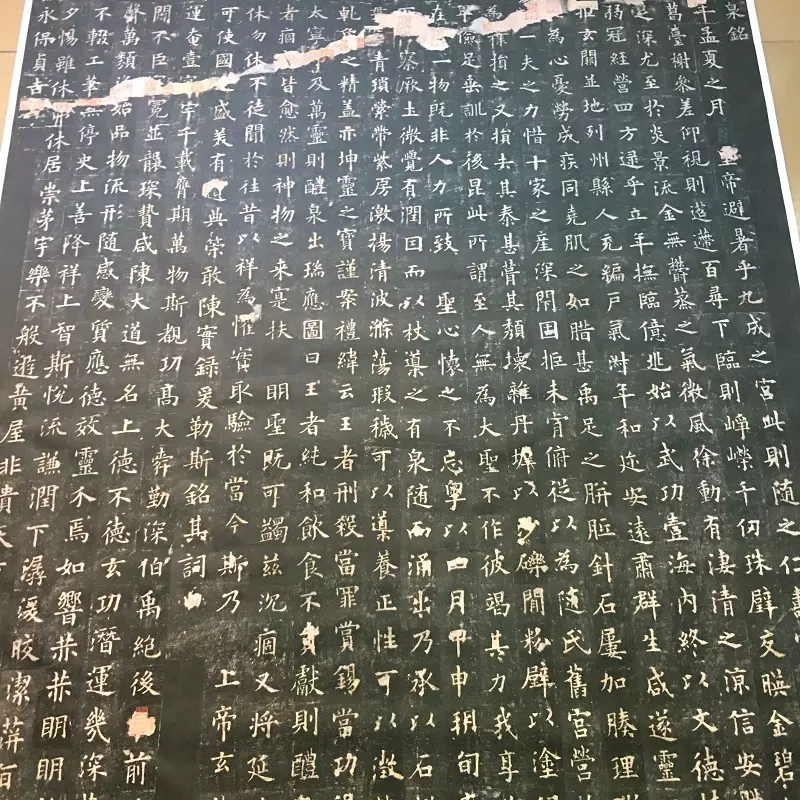 泉銘
年孟夏之月 皇帝避暑乎九成之宮此則隨之仁壽
萬臺榭參差仰視則迢遰百尋下臨則崢嶸千仞珠璧交暎金碧
之深尤至於炎景流金無鬱蒸之氣微風徐動有淒清之涼信安
揚冠經營四方逮乎立年撫臨億兆始以武功壹海內終以文德
玄闕並地列州縣人充編戶氣淑年和迩安遠肅群生咸遂靈
為心憂勞成疾同堯肌之如腊甚禹足之胼胝針石屢加腠理
一夫之力惜十家之產深閉固拒未肯俯從以為隨氏舊宮營
損之又損去其泰甚葺其頹壞雜丹墀以沙礫間粉壁以塗
儉足垂訓於後昆此所謂至人無為大聖不作彼竭其力我享
在一物既非人力所致 聖心懷之不忘粵以四月甲申朔旬
察厥土微覺有潤因而以杖導之有泉隨而涌出乃承以石
青瑣縈帶紫房激揚清波滌蕩瑕穢可以導養正性可以澂
之精蓋亦坤靈之寶謹案禮緯云王者刑殺當罪賞錫當功
太寧及萬靈則醴泉出瑞應圖曰王者純和飲食不貢獻則醴
者痼皆愈然則神物之來寔扶 明聖既可蠲茲沉痼又將延
休勿休不徒聞於往昔以祥為懼實取驗於當今斯乃 上帝玄
可使國盛美有遺典策敢陳實錄爰勒斯銘其詞曰
運奄壹寰宇千載膺期萬物斯覩功高大舜勤深伯禹絕後 前
聞不臣冠冕並襲琛贄咸陳大道無名上德不德玄功潛運幾深
聲萬類資始品物流形隨感變質應德效靈不焉如響赫赫明明
不輟工華無停史上善降祥上智斯悅流謙潤下潺湲皎潔蓱旨
夕惕雖休弗休居崇茅宇樂不般遊黃屋非貴天
永保貞吉